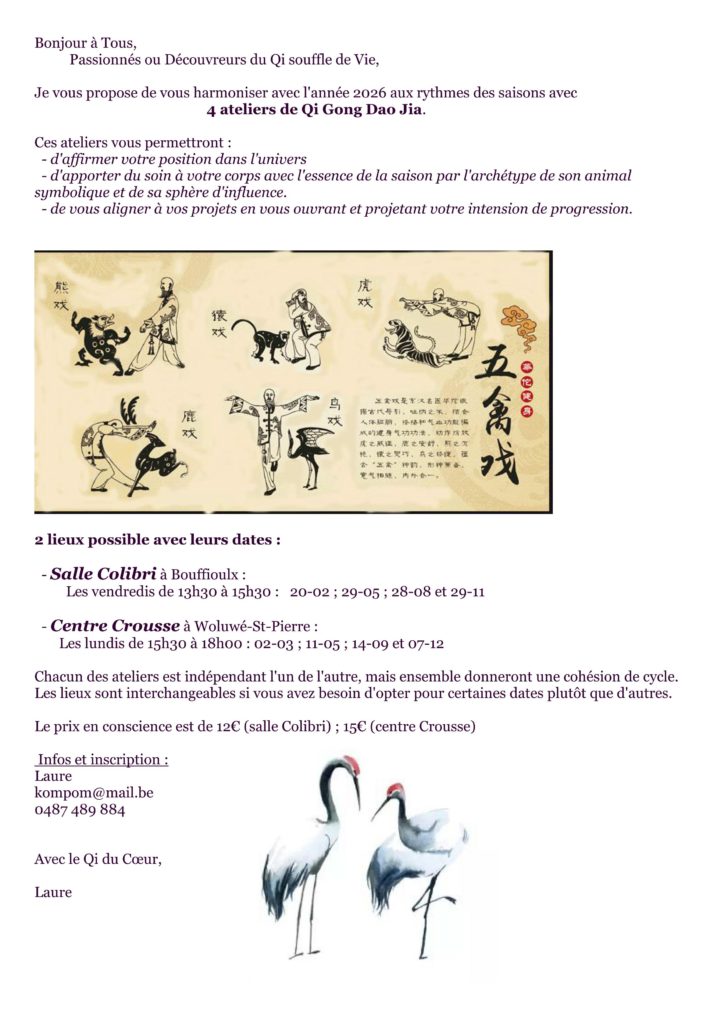 Bonjour à Tous,
Passionnés ou Découvreurs du Qi souffle de Vie,
Je vous propose de vous harmoniser avec l'année 2026 aux rythmes des saisons avec
4 ateliers de Qi Gong Dao Jia.
Ces ateliers vous permettront :
- d'affirmer votre position dans l'univers
- d'apporter du soin à votre corps avec l'essence de la saison par l'archétype de son animal
symbolique et de sa sphère d'influence.
- de vous aligner à vos projets en vous ouvrant et projetant votre intension de progression.
熊戏
猿戏
虎戏
鹿戏
鸟戏
五禽戏
华佗健身
2 lieux possible avec leurs dates :
- Salle Colibri à Bouffioulx :
Les vendredis de 13h30 à 15h30 : 20-02 ; 29-05 ; 28-08 et 29-11
- Centre Crousse à Woluwé-St-Pierre :
Les lundis de 15h30 à 18h00 : 02-03 ; 11-05 ; 14-09 et 07-12
Chacun des ateliers est indépendant l'un de l'autre, mais ensemble donneront une cohésion de cycle.
Les lieux sont interchangeables si vous avez besoin d'opter pour certaines dates plutôt que d'autres.
Le prix en conscience est de 12€ (salle Colibri) ; 15€ (centre Crousse)
Infos et inscription :
Laure
kompom@mail.be
0487 489 884
Avec le Qi du Cœur,
Laure